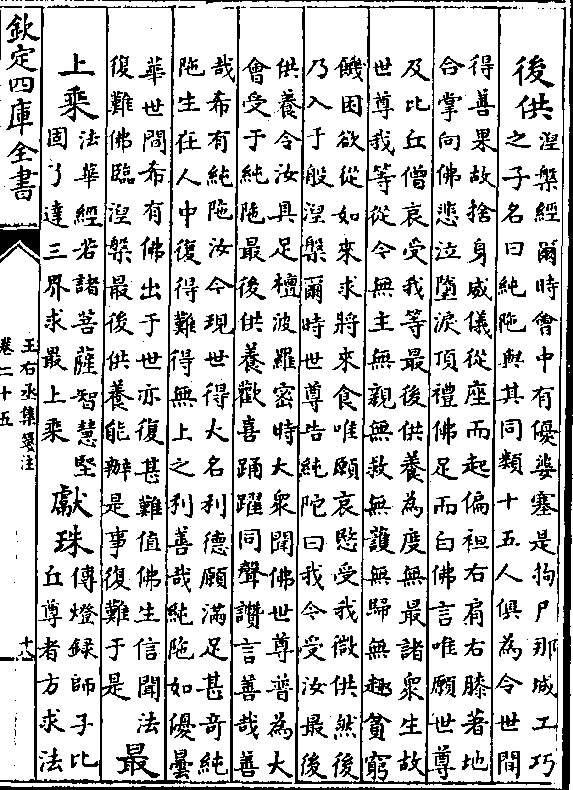 後供
涅槃經爾時會中有優婆塞是拘尸那城工巧
之子名曰純陁與其同類十五人俱為令世間
得善果故捨身威儀從座而起偏袒右肩右膝著地
合掌向佛悲泣墮淚頂禮佛足而白佛言唯願世尊
及比丘僧哀受我等最後供養為度無最諸衆生故
世尊我等從今無主無親無救無護無歸無趣貧窮
饑困欲從如來求將來食唯願哀愍受我微供然後
乃入于般涅槃爾時世尊告純陀曰我今受汝最後
供養令汝具足檀波羅密時大衆聞佛世尊普為大
會受于純陁最後供養歡喜踊躍同聲讚言善哉善
哉希有純陁汝今現世得大名利德願滿足甚奇純
陁生在人中復得難得無上之利善哉純陁如優曇
華世間希有佛出于世亦復甚難值佛生信聞法
復難佛臨涅槃最後供養能辦是事復難于是
最
上乘
法華經若諸菩薩智慧堅
固了達三界求最上乘
獻珠
傳燈録師子比
丘尊者方求法
欽定四庫全書
王右丞集箋注
卷二十五
十八